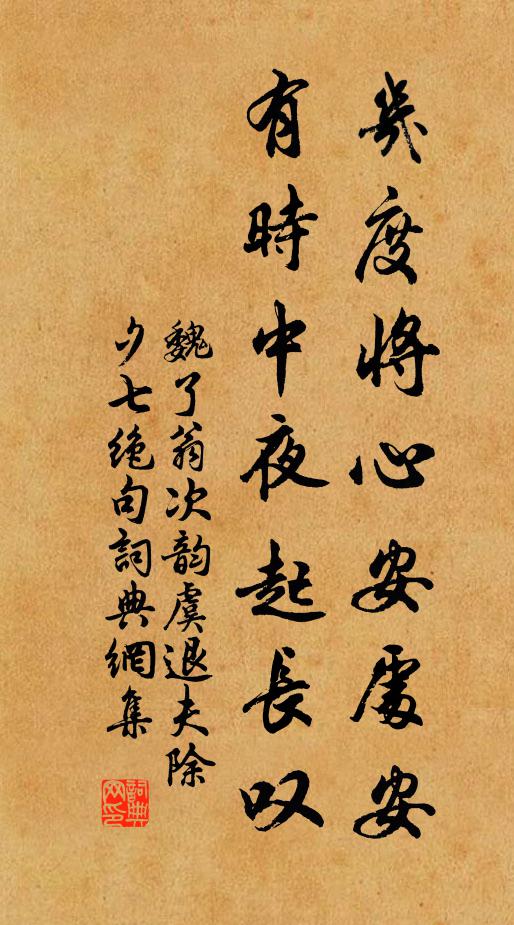 幾度將心安處安
有時中夜起長叹
魏了翁次韵虞退夫除
夕七絶句詞典網集
詞典网印